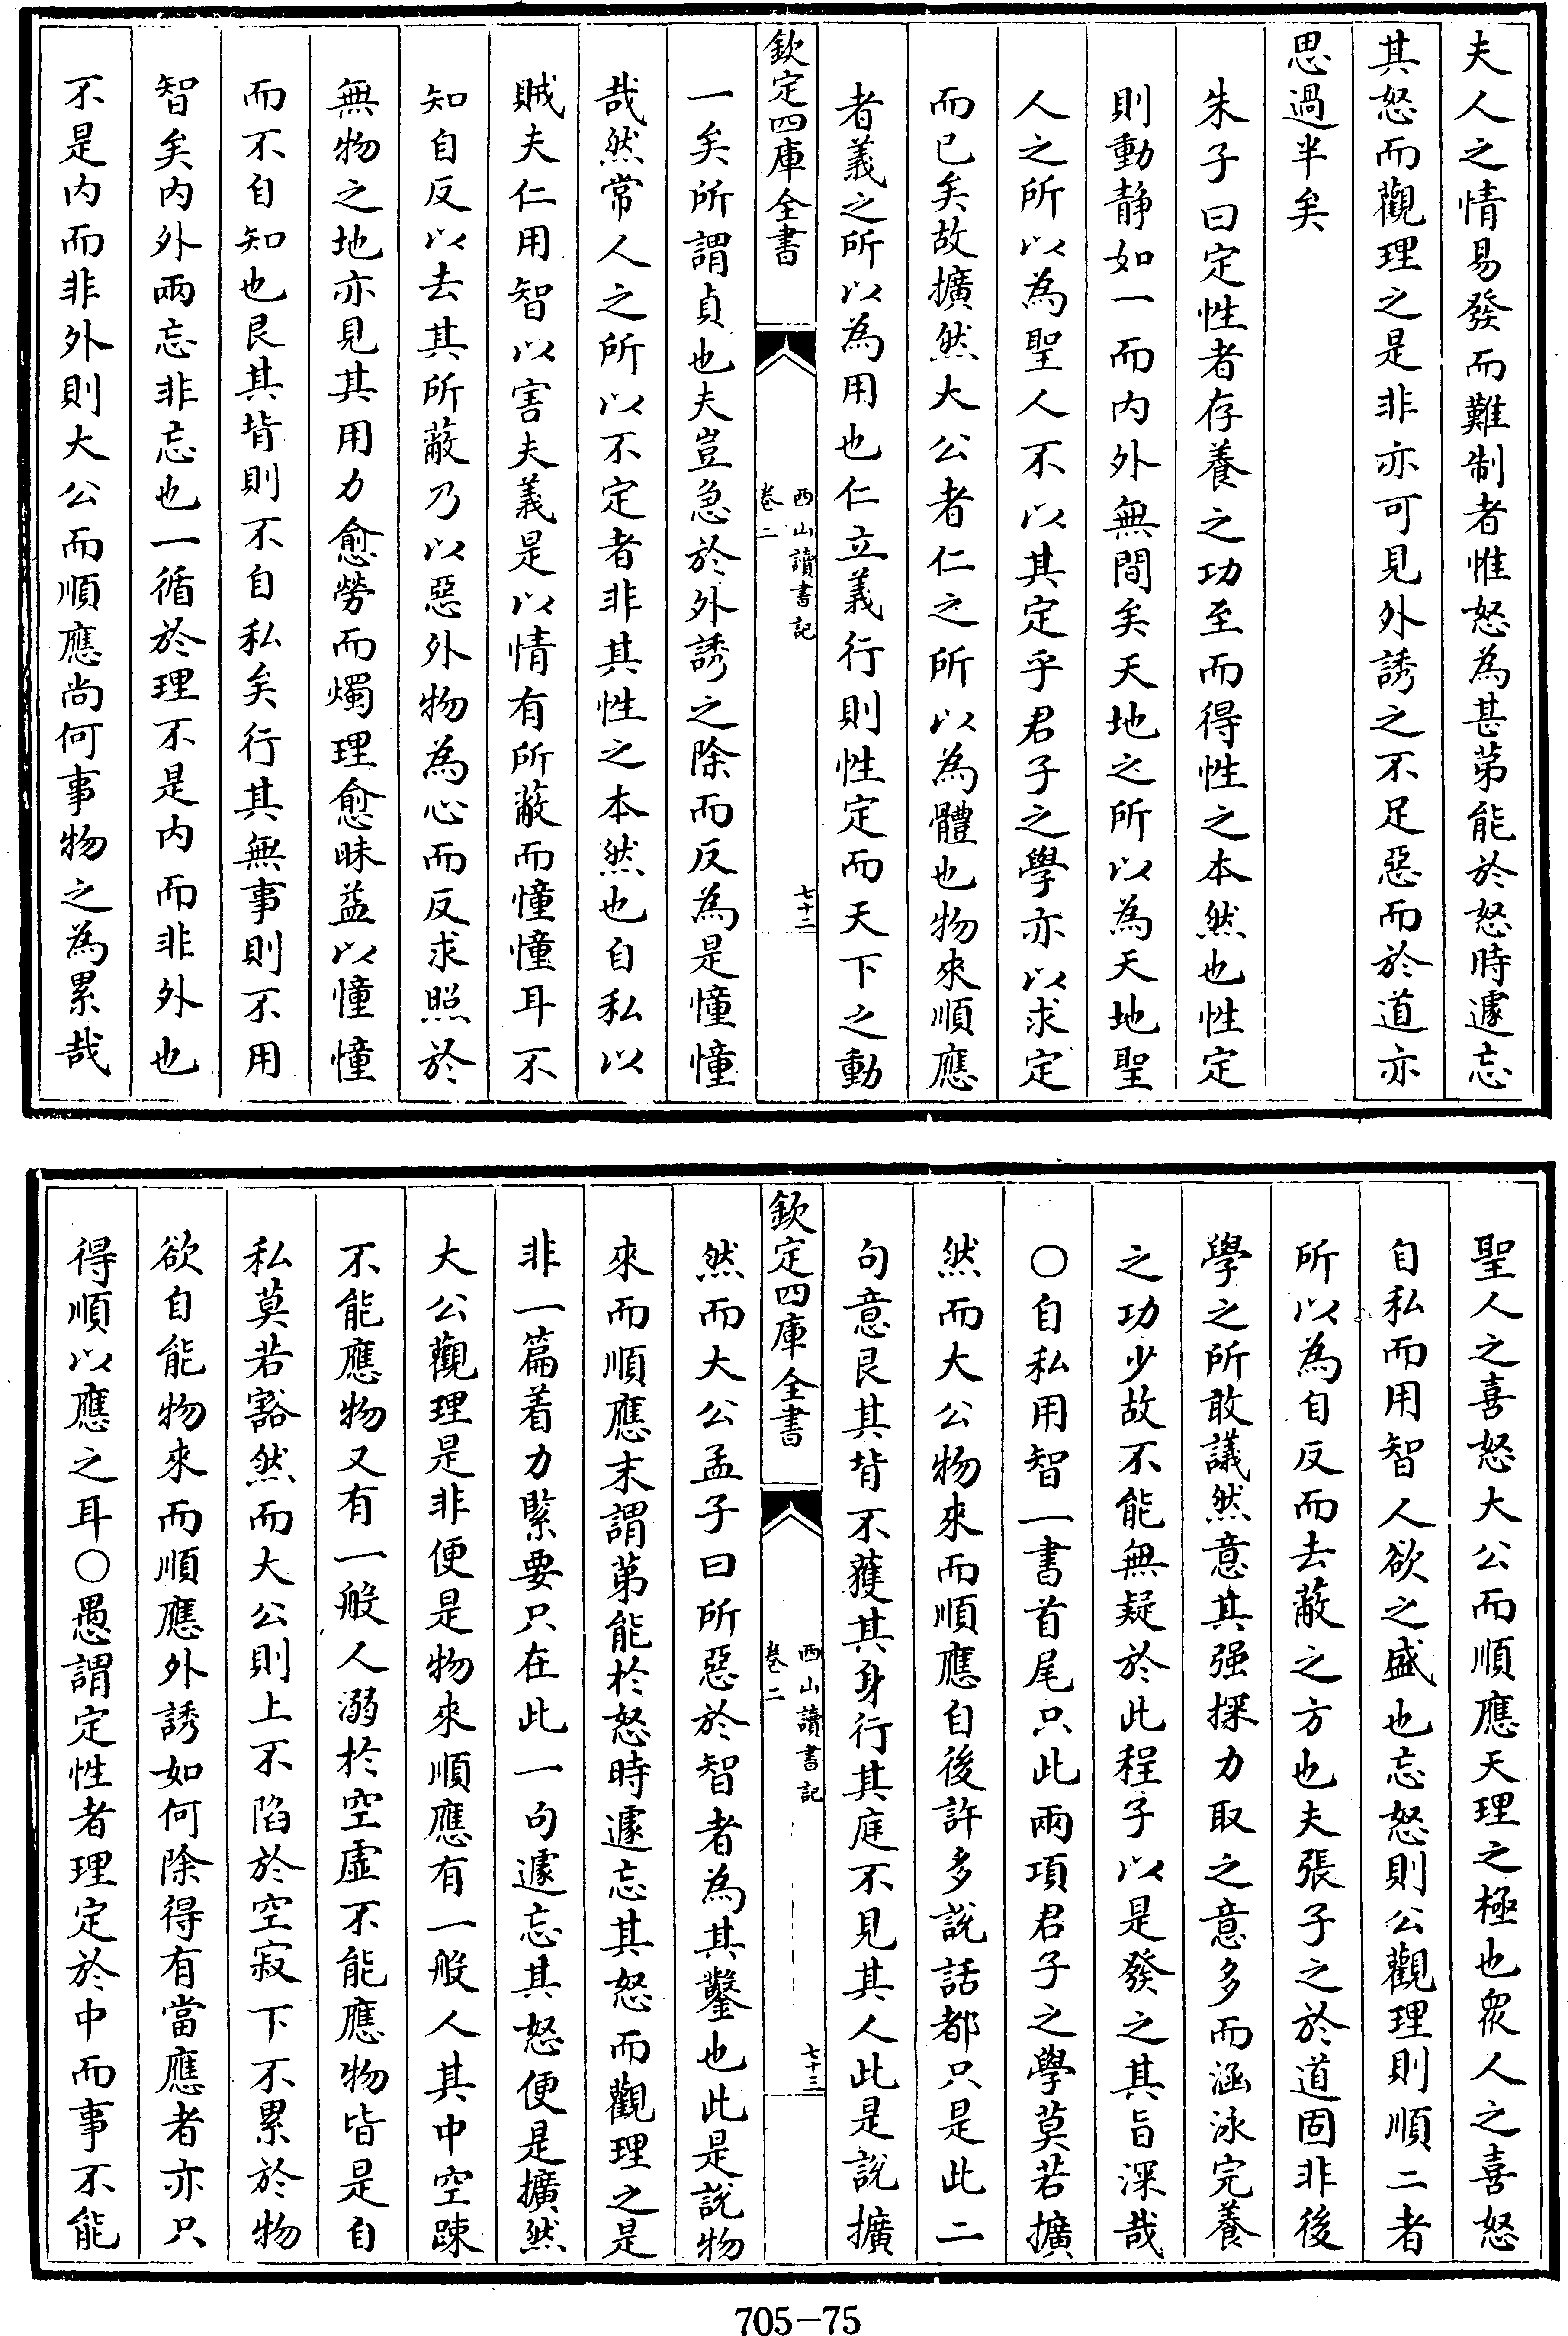 夫人之情易發而難制者惟怒為甚苐能於怒時遽忘
其怒而觀理之是非亦可見外誘之不足惡而於道亦
思過半矣
朱子曰定性者存養之功至而得性之本然也性定
則動静如一而内外無間矣天地之所以為天地聖
人之所以為聖人不以其定乎君子之學亦以求定
而已矣故擴然大公者仁之所以為體也物來順應
者義之所以為用也仁立義行則性定而天下之動
欽定四庫全書
西山讀書記
卷二
七十二
一矣所謂貞也夫豈急於外誘之除而反為是憧憧
哉然常人之所以不定者非其性之本然也自私以
賊夫仁用智以害夫義是以情有所蔽而憧憧耳不
知自反以去其所蔽乃以惡外物為心而反求照於
無物之地亦見其用力愈勞而燭理愈昧益以憧憧
而不自知也艮其背則不自私矣行其無事則不用
智矣内外兩忘非忘也一循於理不是内而非外也
不是内而非外則大公而順應尚何事物之為累哉
聖人之喜怒大公而順應天理之極也衆人之喜怒
自私而用智人欲之盛也忘怒則公觀理則順二者
所以為自反而去蔽之方也夫張子之於道固非後
學之所敢議然意其强探力取之意多而涵泳完養
之功少故不能無疑於此程子以是發之其旨深哉
○自私用智一書首尾只此兩項君子之學莫若擴
然而大公物來而順應自後許多說話都只是此二
句意艮其背不獲其身行其庭不見其人此是說擴
欽定四庫全書
西山讀書記
卷二
七十三
然而大公孟子曰所惡於智者為其鑿也此是說物
來而順應末謂苐能於怒時遽忘其怒而觀理之是
非一篇着力緊要只在此一句遽忘其怒便是擴然
大公觀理是非便是物來順應有一般人其中空踈
不能應物又有一般人溺於空虛不能應物皆是自
私莫若豁然而大公則上不陷於空寂下不累於物
欲自能物來而順應外誘如何除得有當應者亦只
得順以應之耳○愚謂定性者理定於中而事不能
705-75